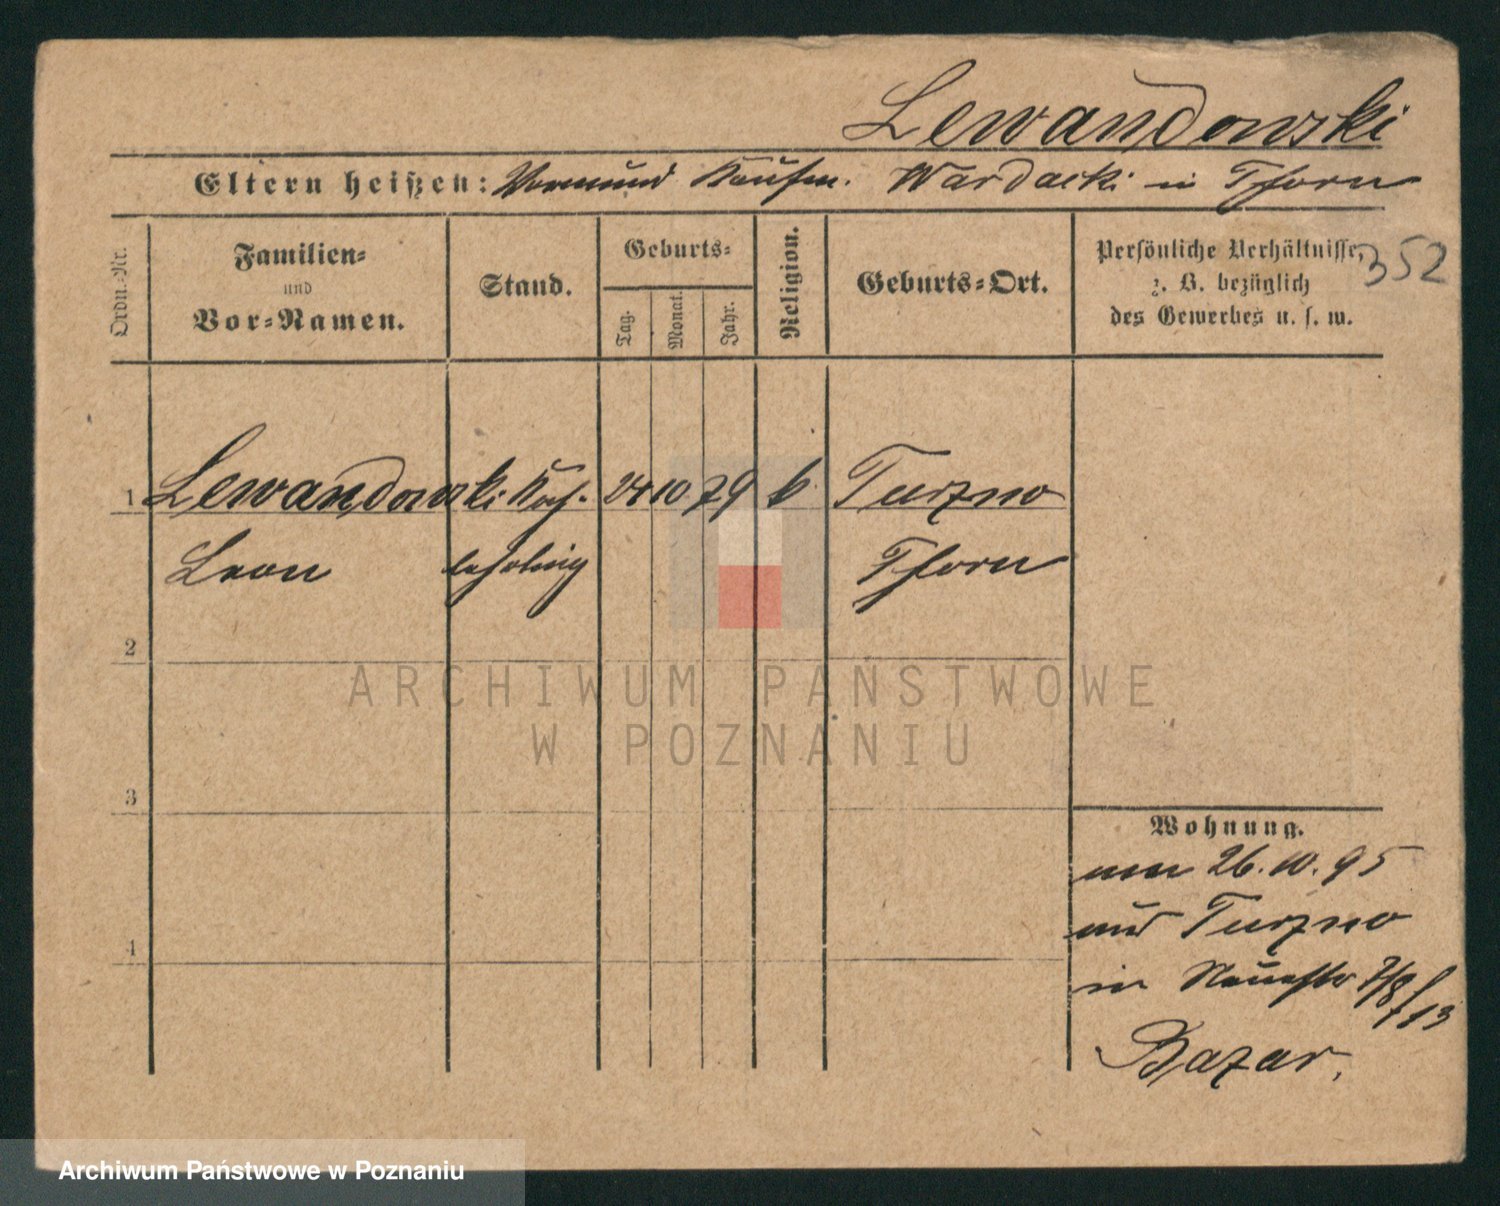 Lewandowski
Eltern heißen: Vormund Kaufm. Wardacki in Thorn
Ordn.-Nr.
Familien-
und
Vor-Namen.
Stand.
Geburts-
Tag.
Monat.
Jahr.
Religion.
Geburts-Ort.
Persönliche Verhältnisse,
z. B. bezüglich
des Gewerbes u. s. w.
352
1 Lewandowski Koch- 24 10 79 k. Turzno
Leon lehrling Thorn
2
3
4
Wohnung.
26.10.95
aus Turzno
in Neuestr 7/8
Bazar.
ARCHIWUM PAŃSTWOWE
W POZNANIU
Archiwum Państwowe w Poznaniu